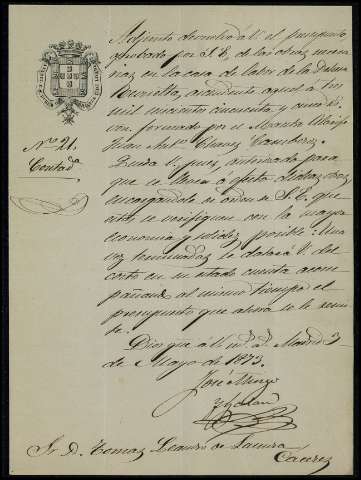 Adjunto devuelvo á V. el presupuesto
aprobado por S. E. de las obras necesa-
rias en la casa de labor de la Dehesa
ascendente aquel á tres
mil cincuenta y cinco
formado por el Maestro Alarife
Juan Ant.º Chavez
Queda V. pues, autorizado para
que se lleven á efecto dichas obras
encargandole de orden de S. E. que
estas se verifiquen con la mayor
economía y solidez posible: Una
vez terminadas se datará V. del
costo en su estado cuenta acom-
pañando al mismo tiempo el
presupuesto que ahora se le remi-
te.
Nº 21.
Contad.ª
Dios gue á V. m.s a.s Madrid 3
de Mayo de 1873.
José
Sr. D. Tomas Leandro de
Caceres